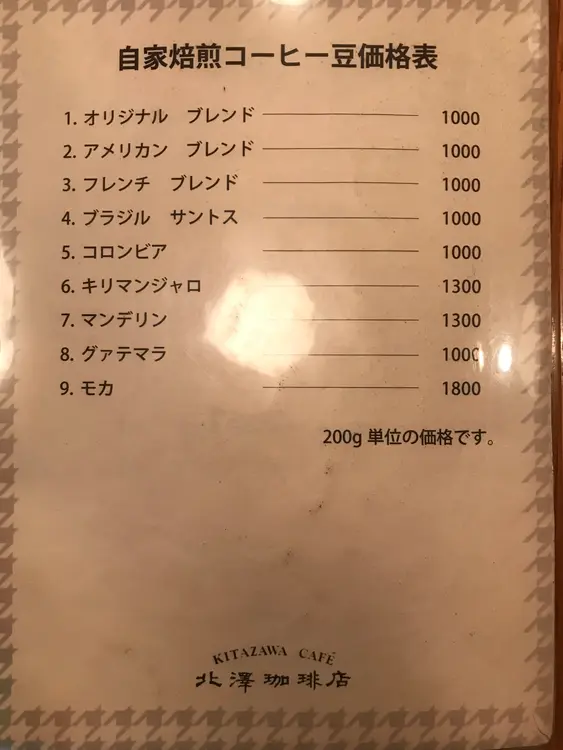 自家焙煎コーヒー豆価格表
1. オリジナル　ブレンド 1000
2. アメリカン　ブレンド 1000
3. フレンチ　ブレンド 1000
4. ブラジル　サントス 1000
5. コロンビア 1000
6. キリマンジャロ 1300
7. マンデリン 1300
8. グァテマラ 1000
9. モカ 1800
200g 単位の価格です。
KITAZAWA CAFÉ
北澤珈琲店